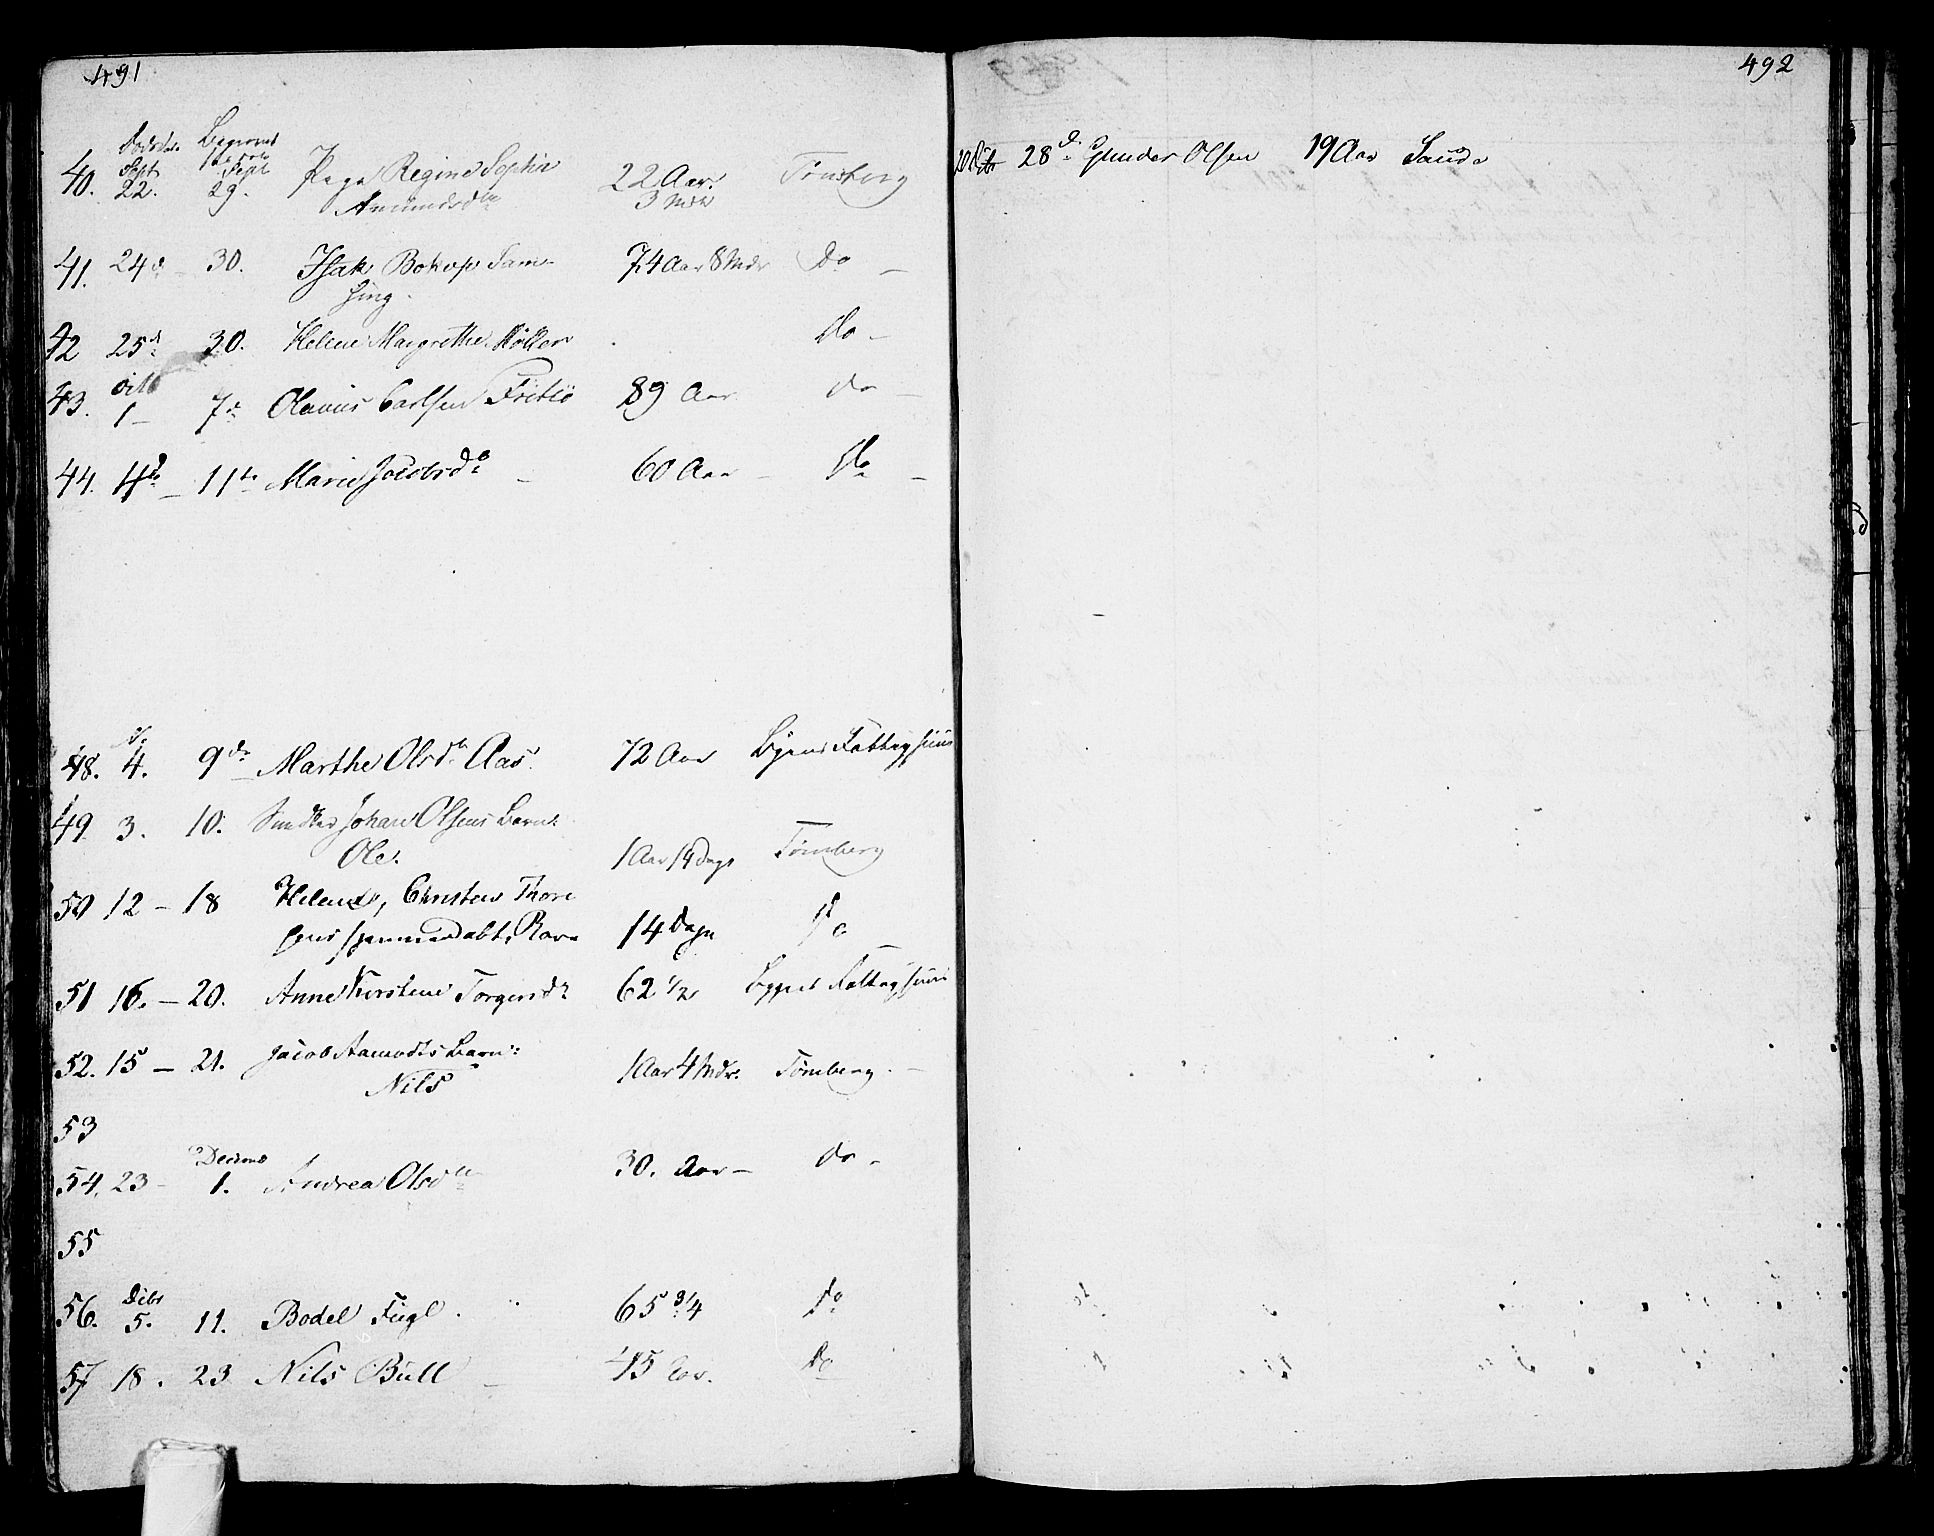 491
Dødsd. Begravet
40. Sept 22. Sept 29. Pige Regine Sophie 22 Aar. Tønsberg
Amundsdtr 3 Mdr
41. 24 d. – 30. Isak Bokop Sam- 74 Aar 8 Mdr Do –
sing.
42 25 d. 30. Helene Margrethe Møller Do –
43. 1 – 7 d. Olavus Carlsen 89 Aar do –
44. 4 d. – 11te Marie Jacobsd. – 60 Aar – Do –
48. 4. 9 d. Marthe Olsd. Aas 72 Aar Byens Fattighuus
49 3. 10. Johan Olsens Barn:
Ole. 1 Aar 14 Dage Tønsberg
50 12 – 18 Helene, Christen Thore
14 Dage Do
51 16. – 20. Anne Kirstine Torgersd. 62 1/2 Byens Fattighuus
52. 15 – 21. Jacob Aamodts Barn:
Nils 1 Aar 4 Mdr. Tønsberg. –
53
54. 23 – Decemb 1. Andrea Olsd. 30. Aar – do –
55
56. Dcbr 5. 11. Bodel Fugl. 65 3/4 Do
57 18. 23 Nils Bull – 45 Aar. Do
492
28 d. Gunder Olsen 19 Aar Sande